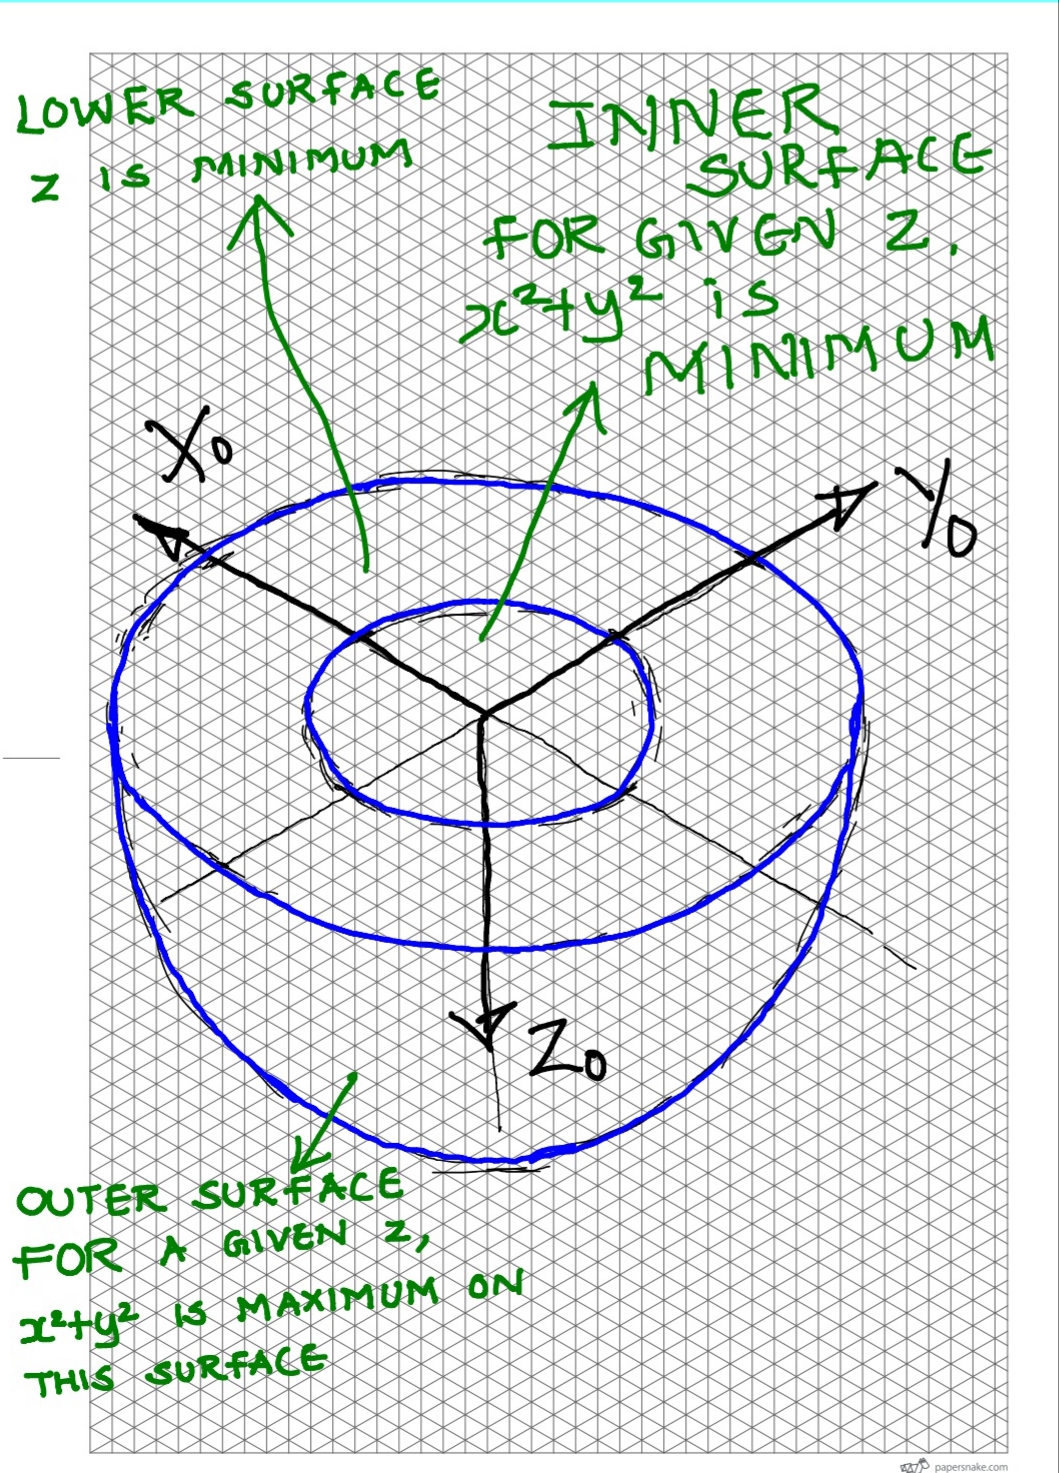 LOWER SURFACE
Z IS MINIMUM
INNER
SURFACE
FOR GIVEN Z,
x²+y² is
MINIMUM
X₀
Y₀
Z₀
OUTER SURFACE
FOR A GIVEN Z,
x²+y² IS MAXIMUM ON
THIS SURFACE
papersnake.com